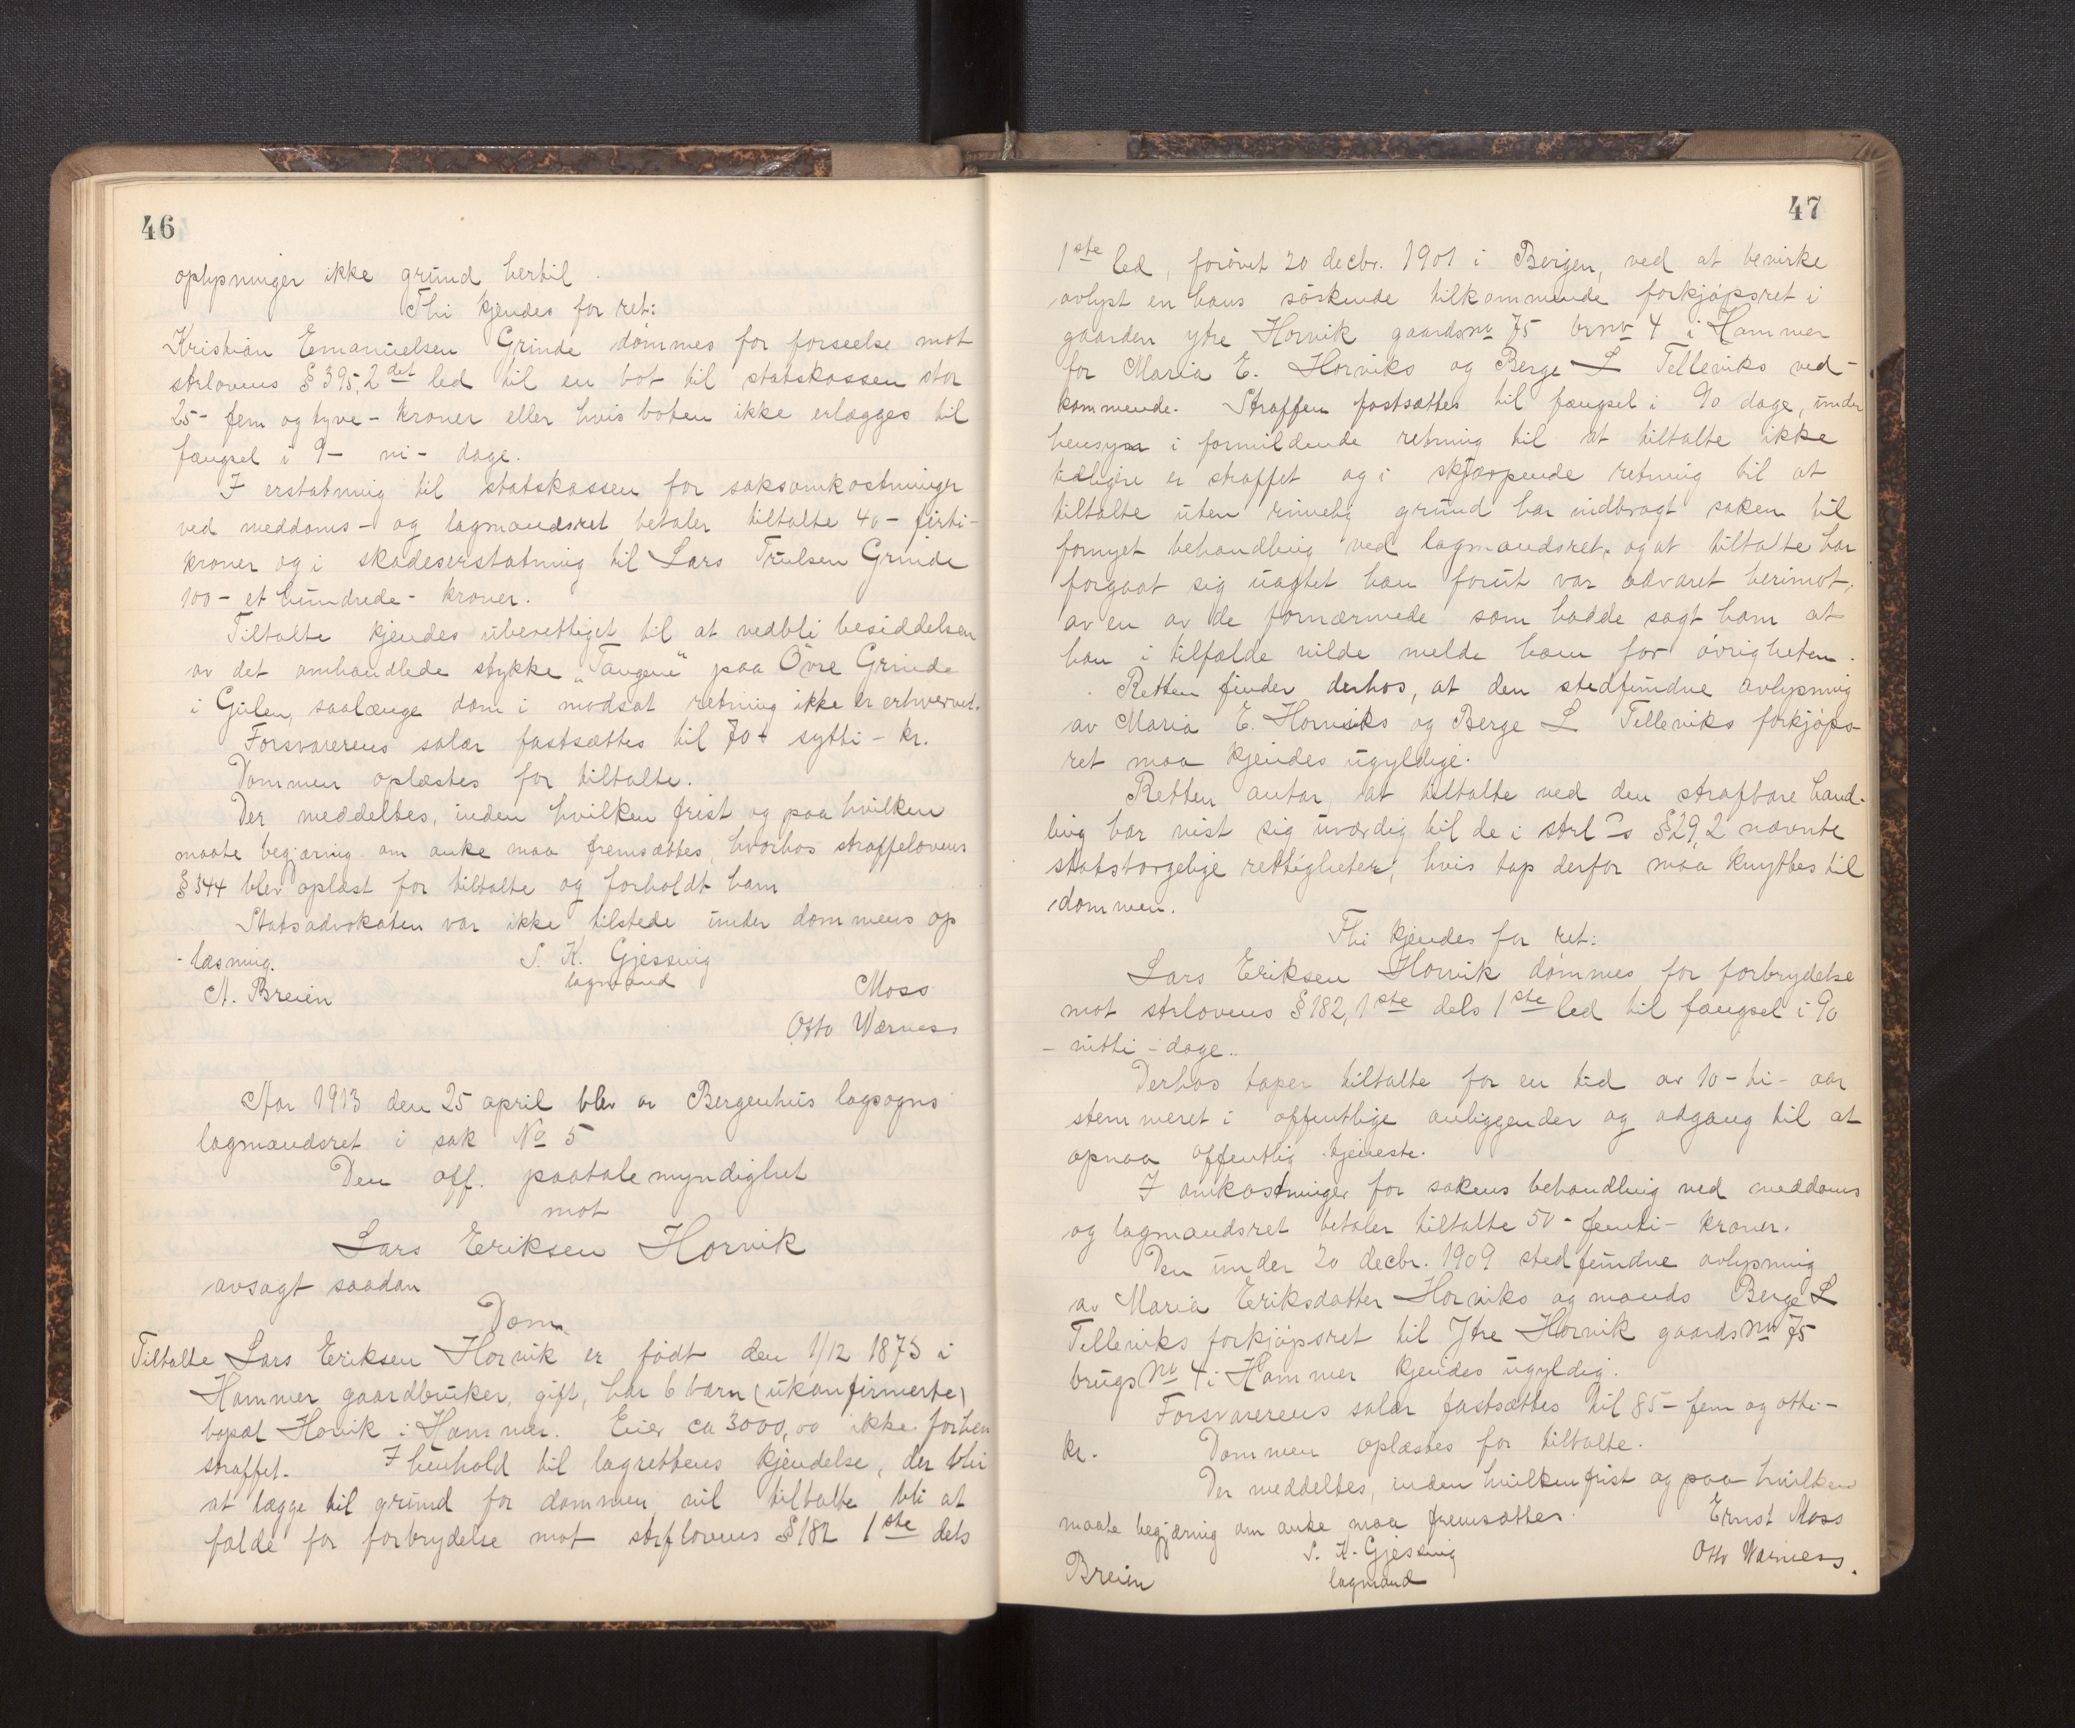 46
oplysninger ikke grund hertil.
Thi kjendes for ret:
Kristian Emanuelsen Grinde dømmes for forseelse mot
strlovens § 395, 2det led til en bot til statskassen stor
25 - fem og tyve - kroner eller hvis boten ikke erlægges til
fængsel i 9 - ni - dage.
I erstatning til statskassen for saksomkostninger
ved meddoms - og lagmandsret betaler tiltalte 40 - firti -
kroner og i skadeserstatning til Lars Trulsen Grinde
100 - et hundrede - kroner.
Tiltalte kjendes uberettiget til at vedbli besiddelsen
av det omhandlede stykke „Tangene" paa Øvre Grinde
i Gulen, saalænge dom i motsat retning ikke er erhvervet.
Forsvarerens salær fastsættes til 70 - sytti - kr.
Dommen oplæstes for tiltalte.
Der meddeltes, inden hvilken frist og paa hvilken
maate begjæring om anke maa fremsættes, hvorhos straffelovens
§ 344 blev oplæst for tiltalte og forholdt ham
Statsadvokaten var ikke tilstede under dommens op
- læsning.
S. K. Gjessing
lagmand
A. Breien
Moss
Otto Wærness
Aar 1913 den 25 april blev av Bergenhus lagsogns
lagmandsret i sak No 5
Den off. paatalemyndighet
mot
Lars Eriksen Horvik
avsagt saadan
Dom
Tiltalte Lars Eriksen Horvik er født den 1/12 1873 i
Hammer gaardbruker, gift, har 6 barn (ukonfirmerte)
bopæl Horvik i Hammer. Eier ca 3000,00 ikke forhen
straffet. I henhold til lagrettens kjendelse, der blir
at lægge til grund for dommen vil tiltalte bli at
fælde for forbrydelse mot strflovens § 182 1ste dels
47
1ste led, forøvet 20 decbr. 1909 i Bergen, ved at bevirke
avlyst en hans søskende tilkommende forkjøpsret i
gaarden ytre Horvik gaardsno 75 brno 4 i Hammer
for Maria E. Horviks og Berge L Telleviks ved-
kommende. Straffen fastsættes til fængsel i 90 dage, under
hensyn i formildende retning til at tiltalte ikke
tidligere er straffet og i skjærpende retning til at
tiltalte uten rimelig grund har indbragt saken til
fornyet behandling ved lagmandsret, og at tiltalte har
forgaat sig uagtet han forut var advaret herimot,
av en av de fornærmede som hadde sagt ham at
han i tilfælde vilde melde ham for øvrigheten.
Retten finder derhos, at den stedfundne avlysning
av Maria E. Horviks og Berge L Telleviks forkjøps-
ret maa kjendes ugyldige.
Retten antar, at tiltalte ved den straffbare hand-
ling har vist sig uværdig til de i strl's § 29,2 nævnte
statsborgelige rettigheter, hvis tap derfor maa knyttes til
dommen.
Thi kjendes for ret:
Lars Eriksen Horvik dømmes for forbrydelse
mot strlovens § 182, 1ste dels 1ste led til fængsel i 90
- nitti - dage.
Derhos taper tiltalte for en tid av 10 - ti - aar
stemmeret i offentlige anliggender og adgang til at
opnaa offentlig tjeneste.
I omkostninger for sakens behandling ved meddoms
og lagmandsret betaler tiltalte 50 - femti - kroner.
Den under 20 decbr. 1909 stedfundne avlysning
av Maria Eriksdatter Horviks og mands Berge L
Telleviks forkjøpsret til Ytre Horvik gaardsno 75
brugsno 4 i Hammer kjendes ugyldig.
Forsvarerens salær fastsættes til 85 - fem og otti -
kr. Dommen oplæstes for tiltalte.
Der meddeltes, inden hvilken frist og paa hvilken
maate begjæring om anke maa fremsættes.
Ernst Moss
S. K. Gjessing
lagmand
Otto Wærness.
Breien